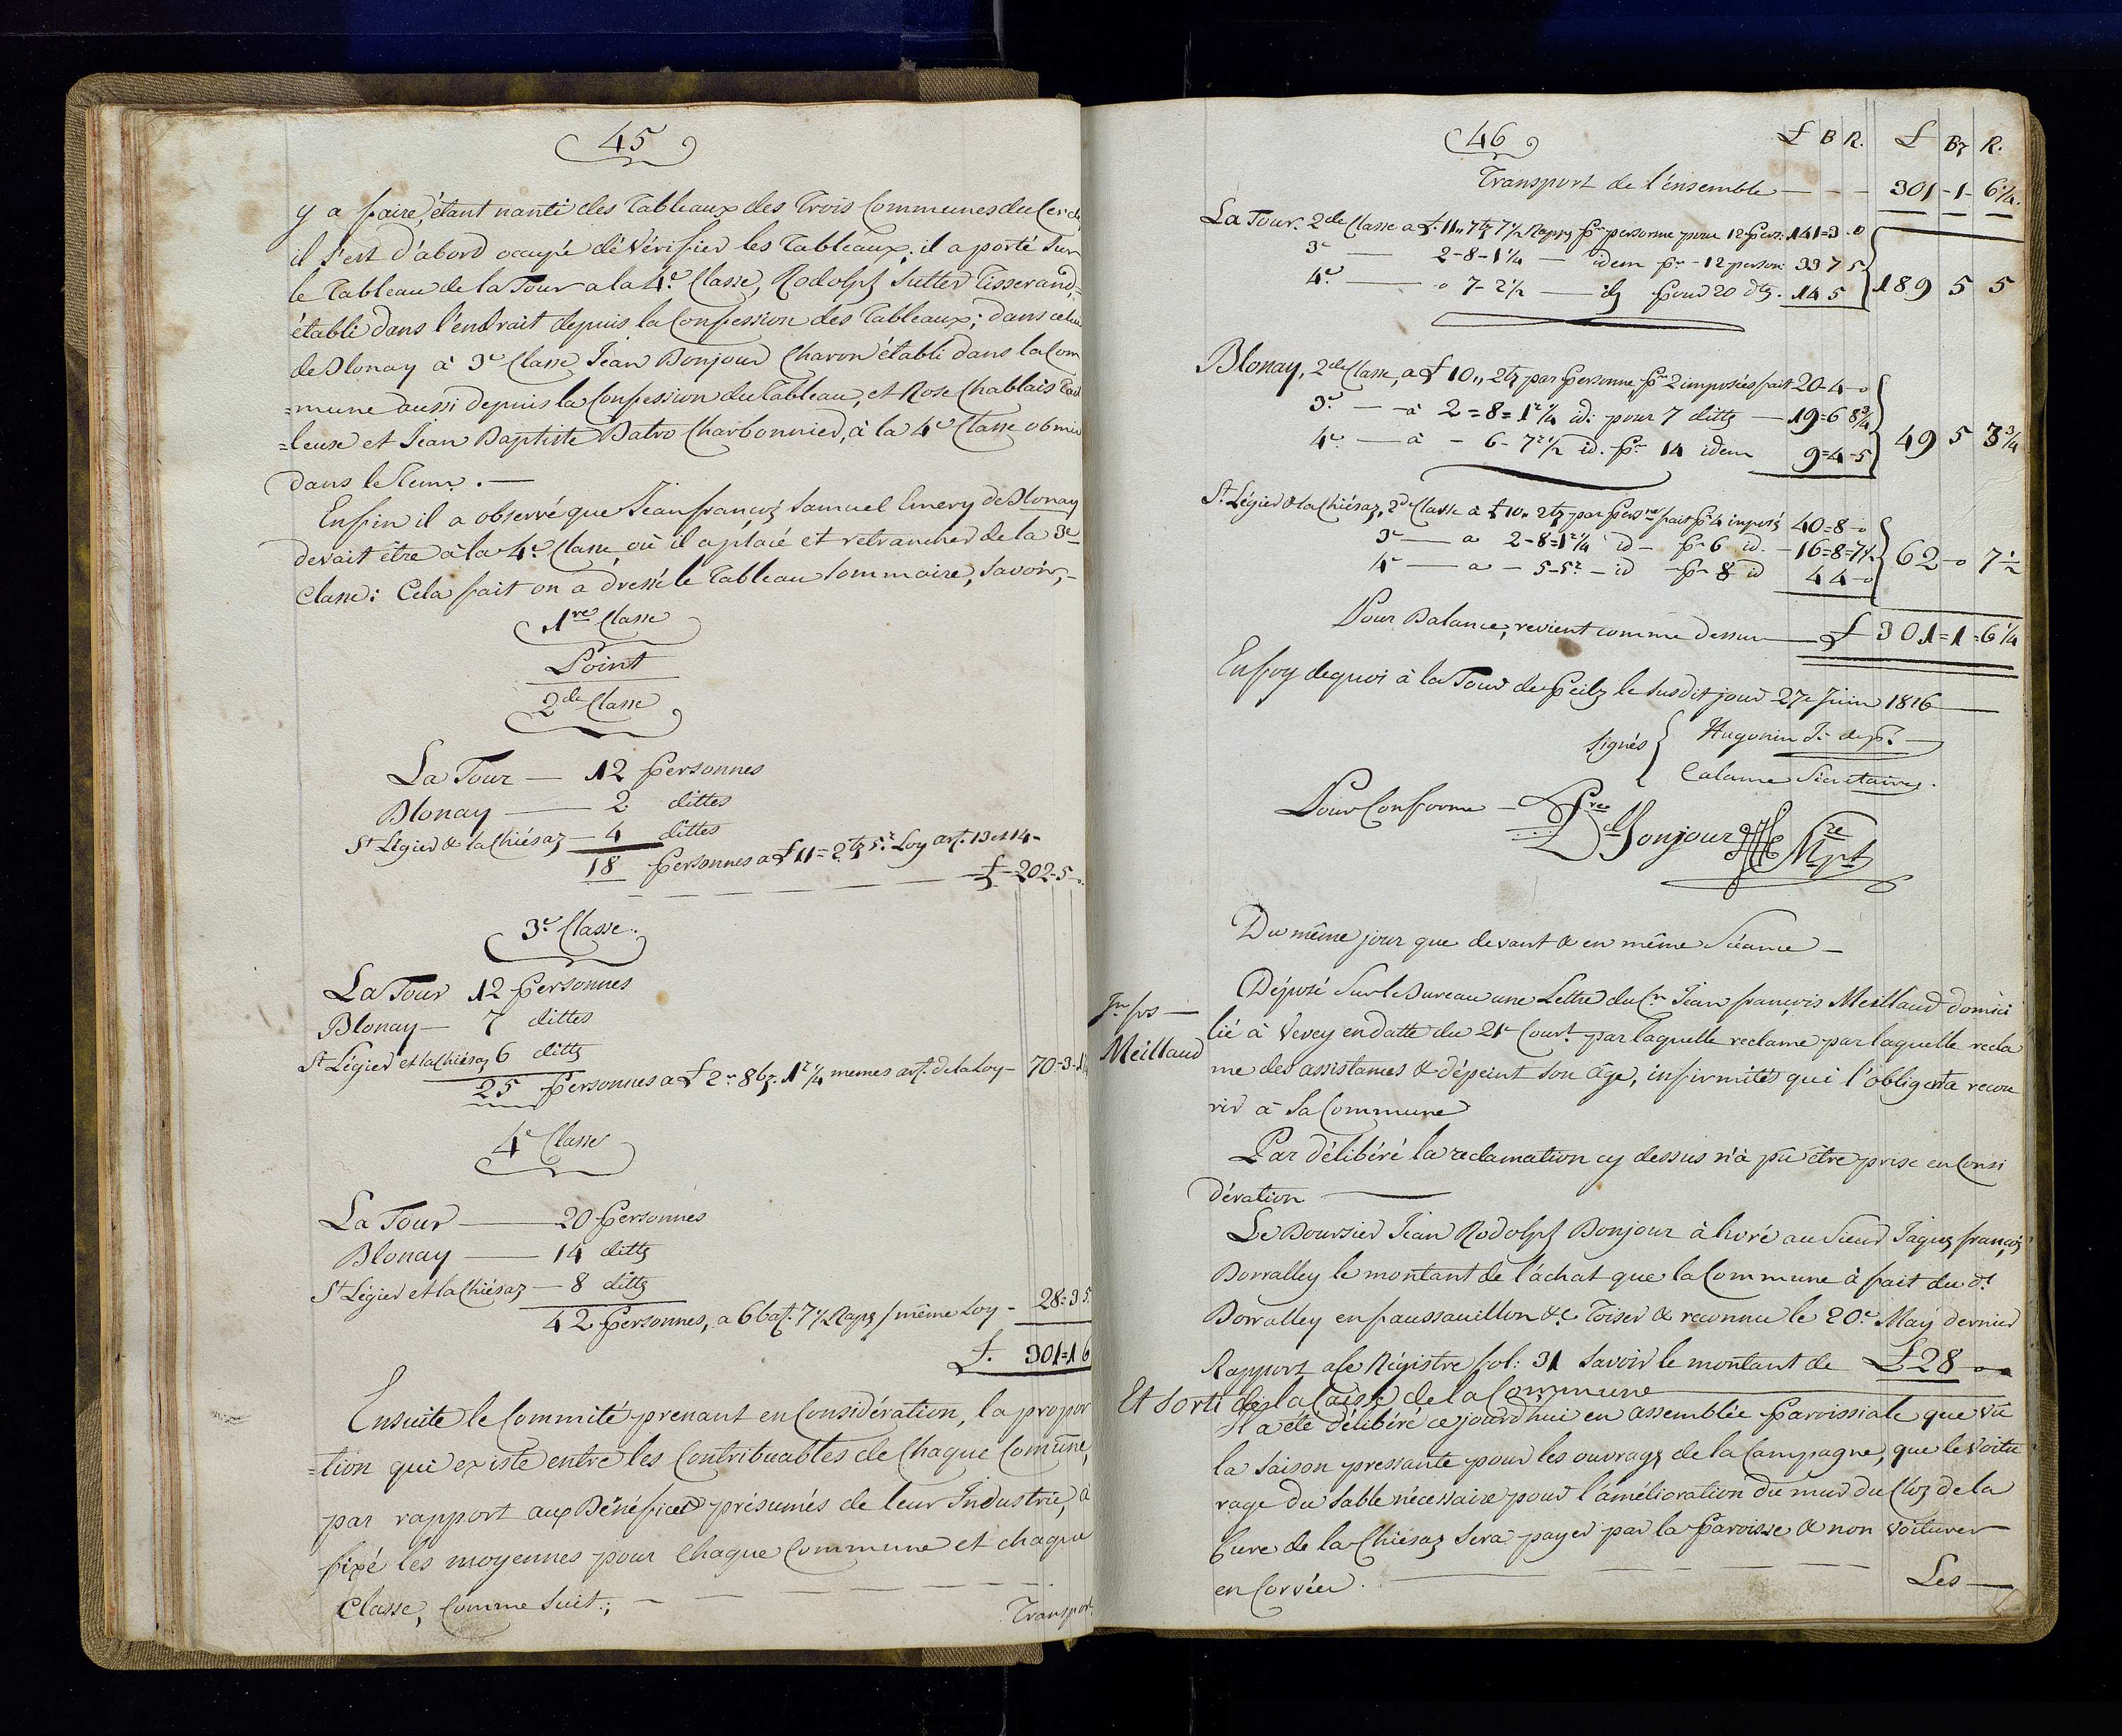 45
y a faire, étant nanti des Tableaux des Trois Communes du Cercle,
il s'est d'abord occupé de Vérifier les Tableaux; il a porté Sur
le Tableau de la Tour a la 4.e Classe, Rodolph Sutter Tisserand,=
établi dans l'endroit depuis la Confession des Tableaux; dans celui
de Blonay à 3.e Classe Jean Bonjour Charon établi dans la Com
=mune aussi depuis la Confession du Tableau, et Rose Chablais Tail
=leuse et Jean Baptiste Batro Charbonnier, à la 4.e Classe obmis
dans le Sien. —
Enfin il a observé que Jean françois Samuel Emery de Blonay
devait être à la 4.e Classe, où il a placé et retrancher de la 3.e
Classe: Cela fait on a dressé le Tableau Sommaire, Savoir,-
1.re Classe
Point
2.de Classe
La Tour — 12 personnes
Blonay — 2 dittes
St Légier & la Chiésaz — 4 dittes
18 personnes a £ 11=2 bz 5.r Loy art. 13 et 14-
£-202-5-0
3.e Classe.
La Tour 12 personnes
Blonay — 7 dittes
St Légier et la Chiésaz 6 dittz
25 personnes a £ 2 „ 8 bz. 1 r 1/4 memes art. de la Loy — 70-3-1 1/4
4.e Classe
La Tour — 20 personnes
Blonay — 14 dittz
St Légier et la Chiésaz — 8 dittz
42 personnes, a 6 bat. 7 1/2 Rapz / même Loy - 28=3 5.
£. 301=1 6
Ensuite le Commité prenant en Considération, la propor
=tion qui existe entre les Contribuables de Chaque Comune,
par rapport aux Bénéfices présumés de leur Industrie, à
fixé les moyennes pour Chaque Commune et chaque
Classe, Comme Suit; —
Transport
46
£ B R. £ Bz R.
Transport de l'ensemble — — — 301-1-6 1/4.
La Tour. 2.de Classe a £. 11 „ 7 bz 7 1/2 Rappz pr personne pour 12 pers: 141=3-0
3.e — 2-8-1 1/4 — idem pr - 12 person: 33 7 5
4.e — 0 7-2 1/2 — id pour 20 dtz. 14 5 189 5 5
Blonay, 2.de Classe, a £ 10 „ 2 bz par personne pr 2 imposés fait 20-4-0
3.e — à 2=8=1 r 1/4 id: pour 7 dittz — 19=6 8 3/4
4.e — à - 6-7 r 1/2 id. pr 14 idem 9=4-5 49 5 3 3/4
St Légier & la Chiésaz, 2.de Classe à £ 10 „ 2 bz par personne fait pr 4 imposz 40=8-0
3.e — a 2-8=1 r 1/4 id — pr 6 id. — 16=8=7 1/2
4.e — a - 5-5 r - id pr 8 id 4 4-0 62-0 7 1/2
Pour Balance, revient comme dessus — £ 301=1=6 1/4
En foy dequoi à la Tour de Peilz le Susdit jour 27.e Juin 1816
Signés Hugonin J. de p.x
Calame Sécretaire.
Pour Conforme —
Bonjour
Du même jour que devant & en même Séance —
Déposé Sur le Bureau une Lettre du Sr Jean françois Meillaud domici
Jn frs —
Meillaud
lié à Vevey en datte du 21.e Court par laquelle reclame par laquelle recla
me des assistances & dépeint Son âge, infirmités qui l'obligent a recou
rir à Sa Commune
Par délibéré la reclamation cy dessus n'à pû être prise en Consi
dération —
Le Boursier Jean Rodolph Bonjour à livré au Sieur Jaques françois
Borralley le montant de l'achat que la Commune à fait du dt
Borralley en faussauillon &c Toiser & reconnu le 20.e May dernier
Rapport a ce Régistre fol: 31 Savoir le montant de £ 28-0-0
Et Sorti de la Caisse de la Commune
Il a été délibéré ce jourd'hui en assemblée paroissiale que vû
la Saison pressante pour les ouvrags de la Campagne, que le voitu
rage du Sable nécessaire pour l'amélioration du mur du Cloz de la
Cure de la Chiésaz Sera payer par la Paroisse & non voiturer
en Corvées. —
Les —